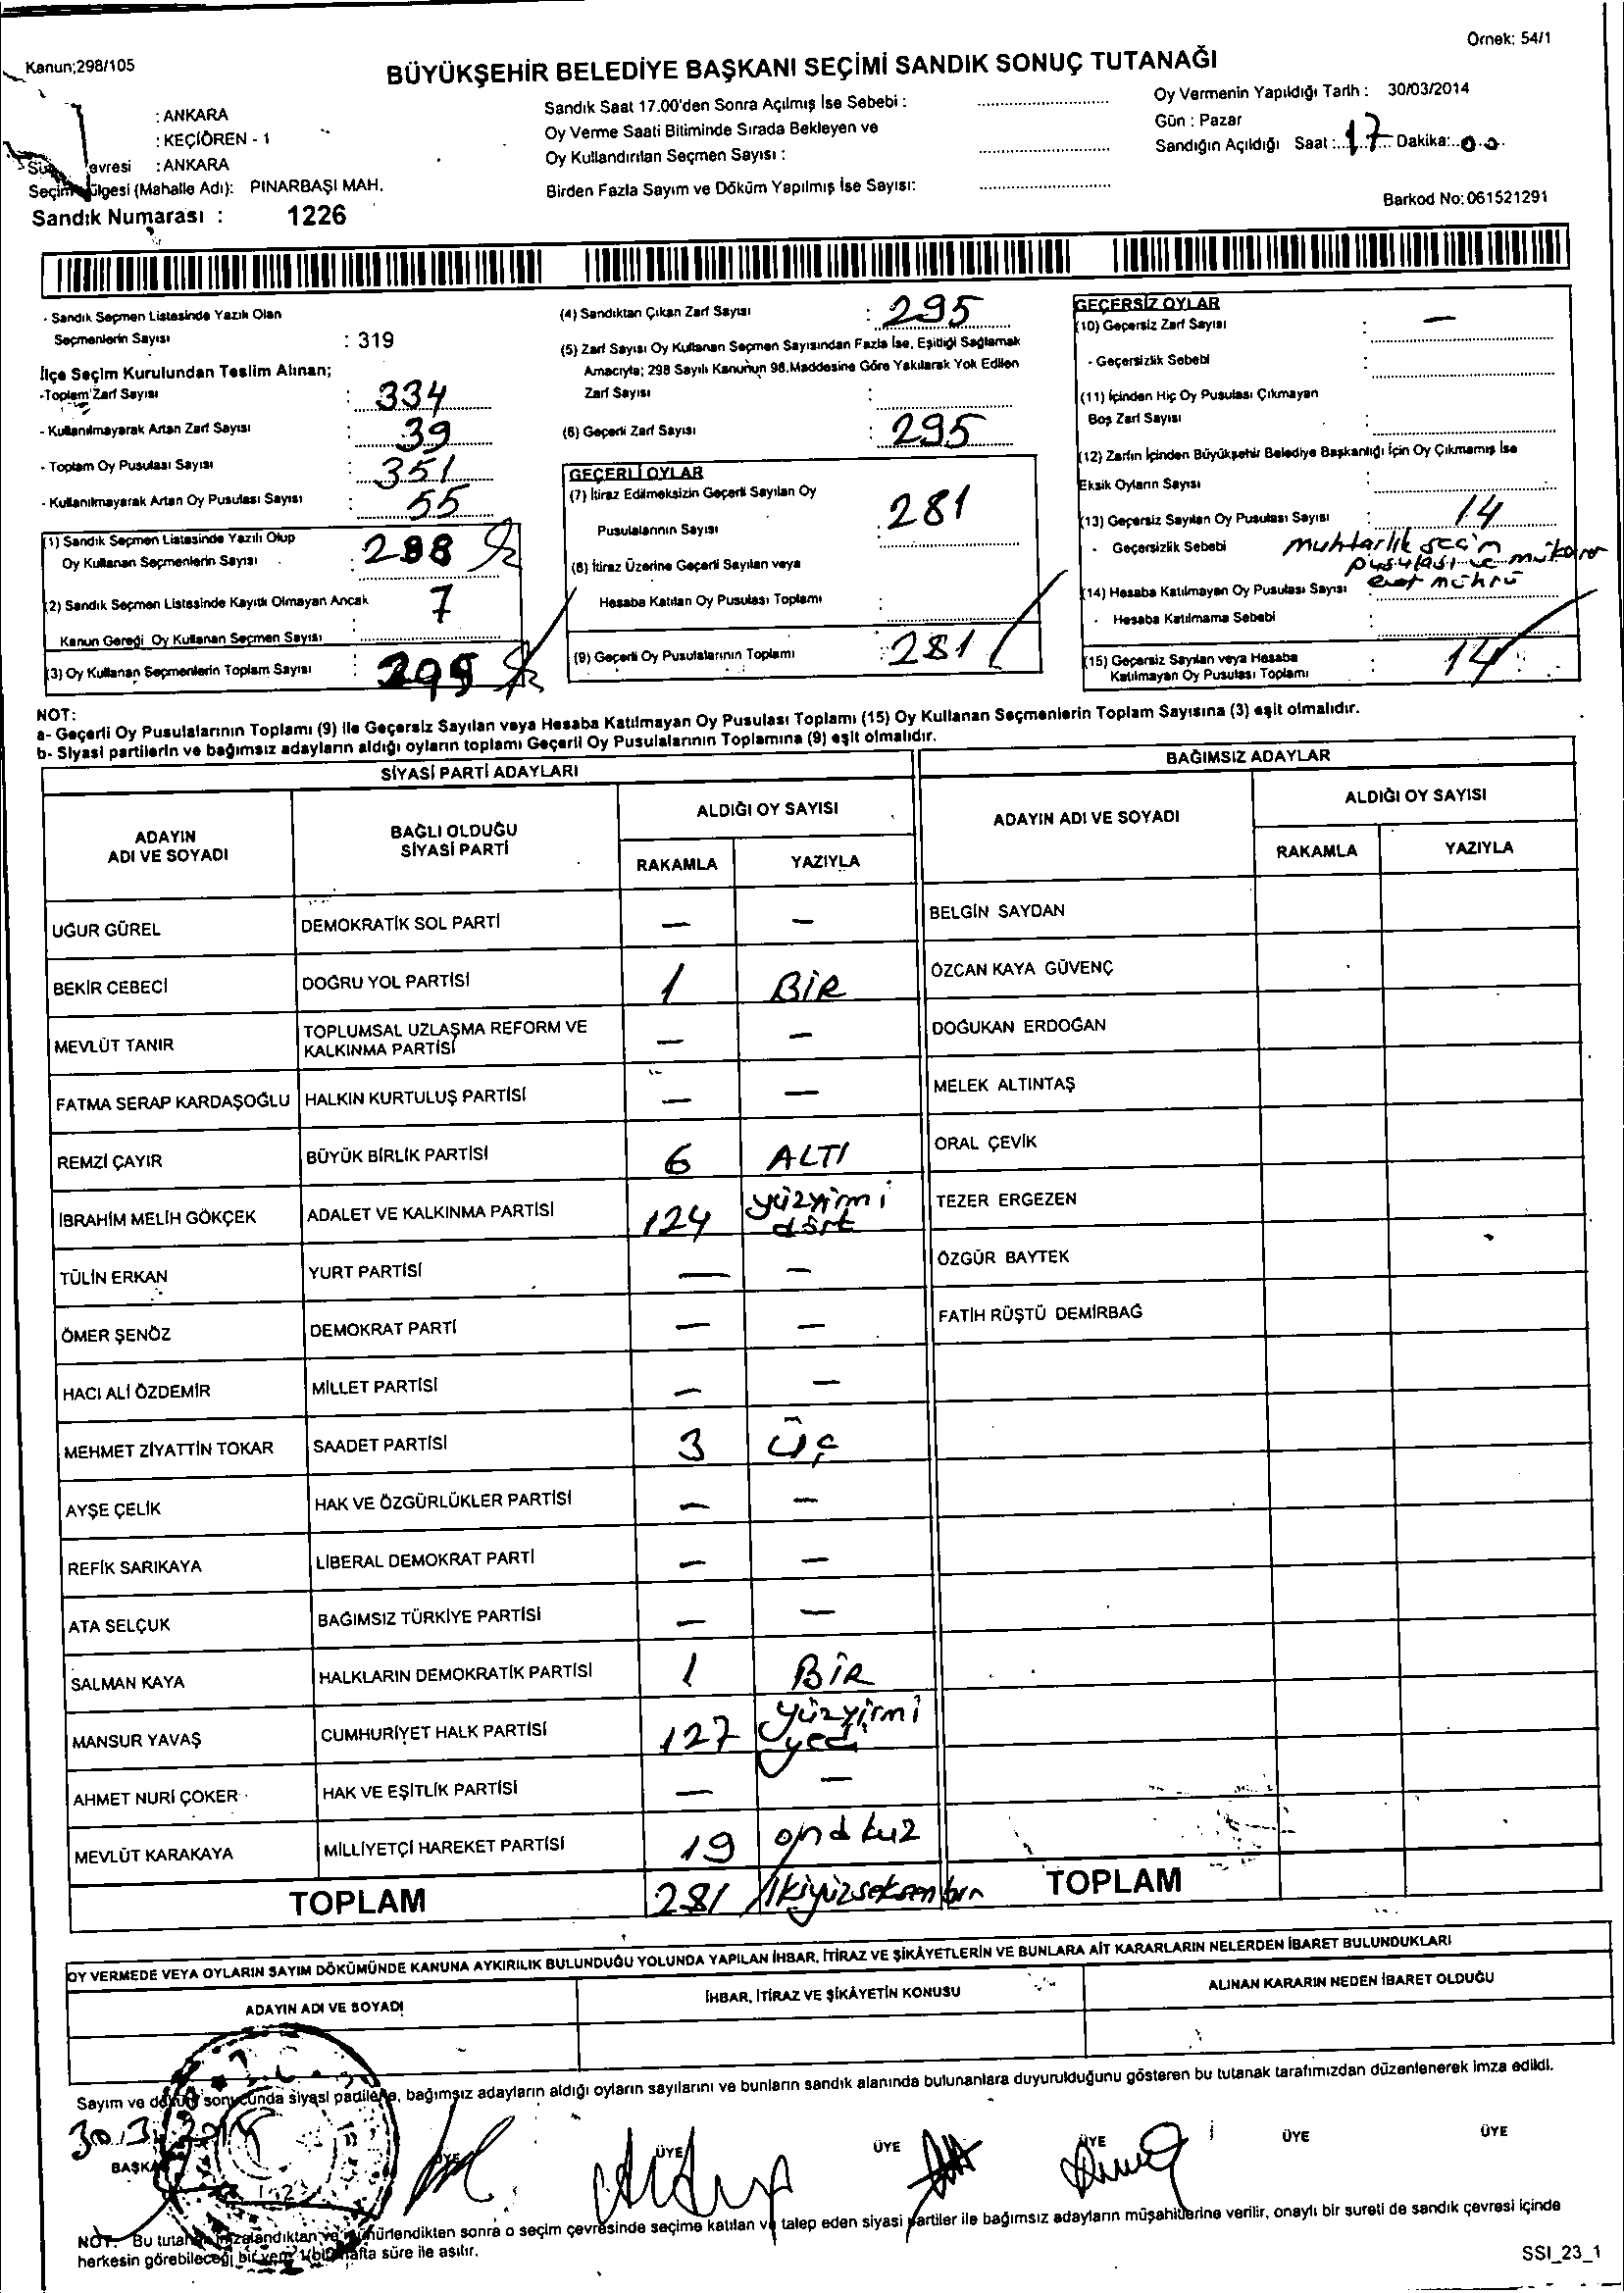 Örnek: 54/1
Kanun;298/105
BÜYÜKŞEHİR BELEDİYE BAŞKANI SEÇİMİ SANDIK SONUÇ TUTANAĞI
: ANKARA
: KEÇİÖREN - 1
: ANKARA
Seçim (Mahalle Adı): PINARBAŞI MAH.
Sandık Numarası : 1226
Sandık Saat 17.00'den Sonra Açılmış İse Sebebi :
Oy Verme Saati Bitiminde Sırada Bekleyen ve
Oy Kullandırılan Seçmen Sayısı :
Birden Fazla Sayım ve Döküm Yapılmış İse Sayısı:
Oy Vermenin Yapıldığı Tarih : 30/03/2014
Gün : Pazar
Sandığın Açıldığı Saat : 17 Dakika: 00
Barkod No: 061521291
- Sandık Seçmen Listesinde Yazılı Olan
Seçmenlerin Sayısı : 319
İlçe Seçim Kurulundan Teslim Alınan;
-Toplam Zarf Sayısı : 334
- Kullanılmayarak Artan Zarf Sayısı : 39
- Toplam Oy Pusulası Sayısı : 351
- Kullanılmayarak Artan Oy Pusulası Sayısı : 55
(1) Sandık Seçmen Listesinde Yazılı Olup
Oy Kullanan Seçmenlerin Sayısı : 288
(2) Sandık Seçmen Listesinde Kayıtlı Olmayan Ancak
Kanun Gereği Oy Kullanan Seçmen Sayısı : 7
(3) Oy Kullanan Seçmenlerin Toplam Sayısı : 295
(4) Sandıktan Çıkan Zarf Sayısı : 295
(5) Zarf Sayısı Oy Kullanan Seçmen Sayısından Fazla İse, Eşitliği Sağlamak
Amacıyla; 298 Sayılı Kanunun 98.Maddesine Göre Yakılarak Yok Edilen
Zarf Sayısı :
(6) Geçerli Zarf Sayısı : 295
GEÇERLİ OYLAR
(7) İtiraz Edilmeksizin Geçerli Sayılan Oy
Pusulalarının Sayısı : 281
(8) İtiraz Üzerine Geçerli Sayılan veya
Hesaba Katılan Oy Pusulası Toplamı :
(9) Geçerli Oy Pusulalarının Toplamı : 281
GEÇERSİZ OYLAR
(10) Geçersiz Zarf Sayısı : —
- Geçersizlik Sebebi :
(11) İçinden Hiç Oy Pusulası Çıkmayan
Boş Zarf Sayısı :
(12) Zarfın İçinden Büyükşehir Belediye Başkanlığı İçin Oy Çıkmamış İse
Eksik Oyların Sayısı :
(13) Geçersiz Sayılan Oy Pusulası Sayısı : 14
- Geçersizlik Sebebi muhtarlık seçim
pusulası ve mükerrer
evet mührü
(14) Hesaba Katılmayan Oy Pusulası Sayısı :
- Hesaba Katılmama Sebebi :
(15) Geçersiz Sayılan veya Hesaba
Katılmayan Oy Pusulası Toplamı : 14
NOT:
a- Geçerli Oy Pusulalarının Toplamı (9) ile Geçersiz Sayılan veya Hesaba Katılmayan Oy Pusulası Toplamı (15) Oy Kullanan Seçmenlerin Toplam Sayısına (3) eşit olmalıdır.
b- Siyasi partilerin ve bağımsız adayların aldığı oyların toplamı Geçerli Oy Pusulalarının Toplamına (9) eşit olmalıdır.
SİYASİ PARTİ ADAYLARI BAĞIMSIZ ADAYLAR
ADAYIN ADI VE SOYADI BAĞLI OLDUĞU SİYASİ PARTİ ALDIĞI OY SAYISI ADAYIN ADI VE SOYADI ALDIĞI OY SAYISI
RAKAMLA YAZIYLA RAKAMLA YAZIYLA
UĞUR GÜREL DEMOKRATİK SOL PARTİ — — BELGİN SAYDAN
BEKİR CEBECİ DOĞRU YOL PARTİSİ 1 BİR ÖZCAN KAYA GÜVENÇ
MEVLÜT TANIR TOPLUMSAL UZLAŞMA REFORM VE KALKINMA PARTİSİ — — DOĞUKAN ERDOĞAN
FATMA SERAP KARDAŞOĞLU HALKIN KURTULUŞ PARTİSİ — — MELEK ALTINTAŞ
REMZİ ÇAYIR BÜYÜK BİRLİK PARTİSİ 6 ALTI ORAL ÇEVİK
İBRAHİM MELİH GÖKÇEK ADALET VE KALKINMA PARTİSİ 124 yüzyirmi dört TEZER ERGEZEN
TÜLİN ERKAN YURT PARTİSİ — — ÖZGÜR BAYTEK
ÖMER ŞENÖZ DEMOKRAT PARTİ — — FATİH RÜŞTÜ DEMİRBAĞ
HACI ALİ ÖZDEMİR MİLLET PARTİSİ — —
MEHMET ZİYATTİN TOKAR SAADET PARTİSİ 3 üç
AYŞE ÇELİK HAK VE ÖZGÜRLÜKLER PARTİSİ — —
REFİK SARIKAYA LİBERAL DEMOKRAT PARTİ — —
ATA SELÇUK BAĞIMSIZ TÜRKİYE PARTİSİ — —
SALMAN KAYA HALKLARIN DEMOKRATİK PARTİSİ 1 BİR
MANSUR YAVAŞ CUMHURİYET HALK PARTİSİ 127 yüzyirmi yedi
AHMET NURİ ÇOKER HAK VE EŞİTLİK PARTİSİ — —
MEVLÜT KARAKAYA MİLLİYETÇİ HAREKET PARTİSİ 19 ondokuz
TOPLAM 281 ikiyüzseksenbir TOPLAM
OY VERMEDE VEYA OYLARIN SAYIM DÖKÜMÜNDE KANUNA AYKIRILIK BULUNDUĞU YOLUNDA YAPILAN İHBAR, İTİRAZ VE ŞİKÂYETLERİN VE BUNLARA AİT KARARLARIN NELERDEN İBARET BULUNDUKLARI
ADAYIN ADI VE SOYADI İHBAR, İTİRAZ VE ŞİKÂYETİN KONUSU ALINAN KARARIN NEDEN İBARET OLDUĞU
Sayım ve döküm sonucunda siyasi partilere, bağımsız adayların aldığı oyların sayılarını ve bunların sandık alanında bulunanlara duyurulduğunu gösteren bu tutanak tarafımızdan düzenlenerek imza edildi.
BAŞKAN ÜYE ÜYE ÜYE ÜYE ÜYE ÜYE
NOT: Bu tutanak imzalandıktan ve mühürlendikten sonra o seçim çevresinde seçime katılan ve talep eden siyasi partiler ile bağımsız adayların müşahitlerine verilir, onaylı bir sureti de sandık çevresi içinde
herkesin görebileceği bir yere 1(bir) hafta süre ile asılır.
SSI_23_1